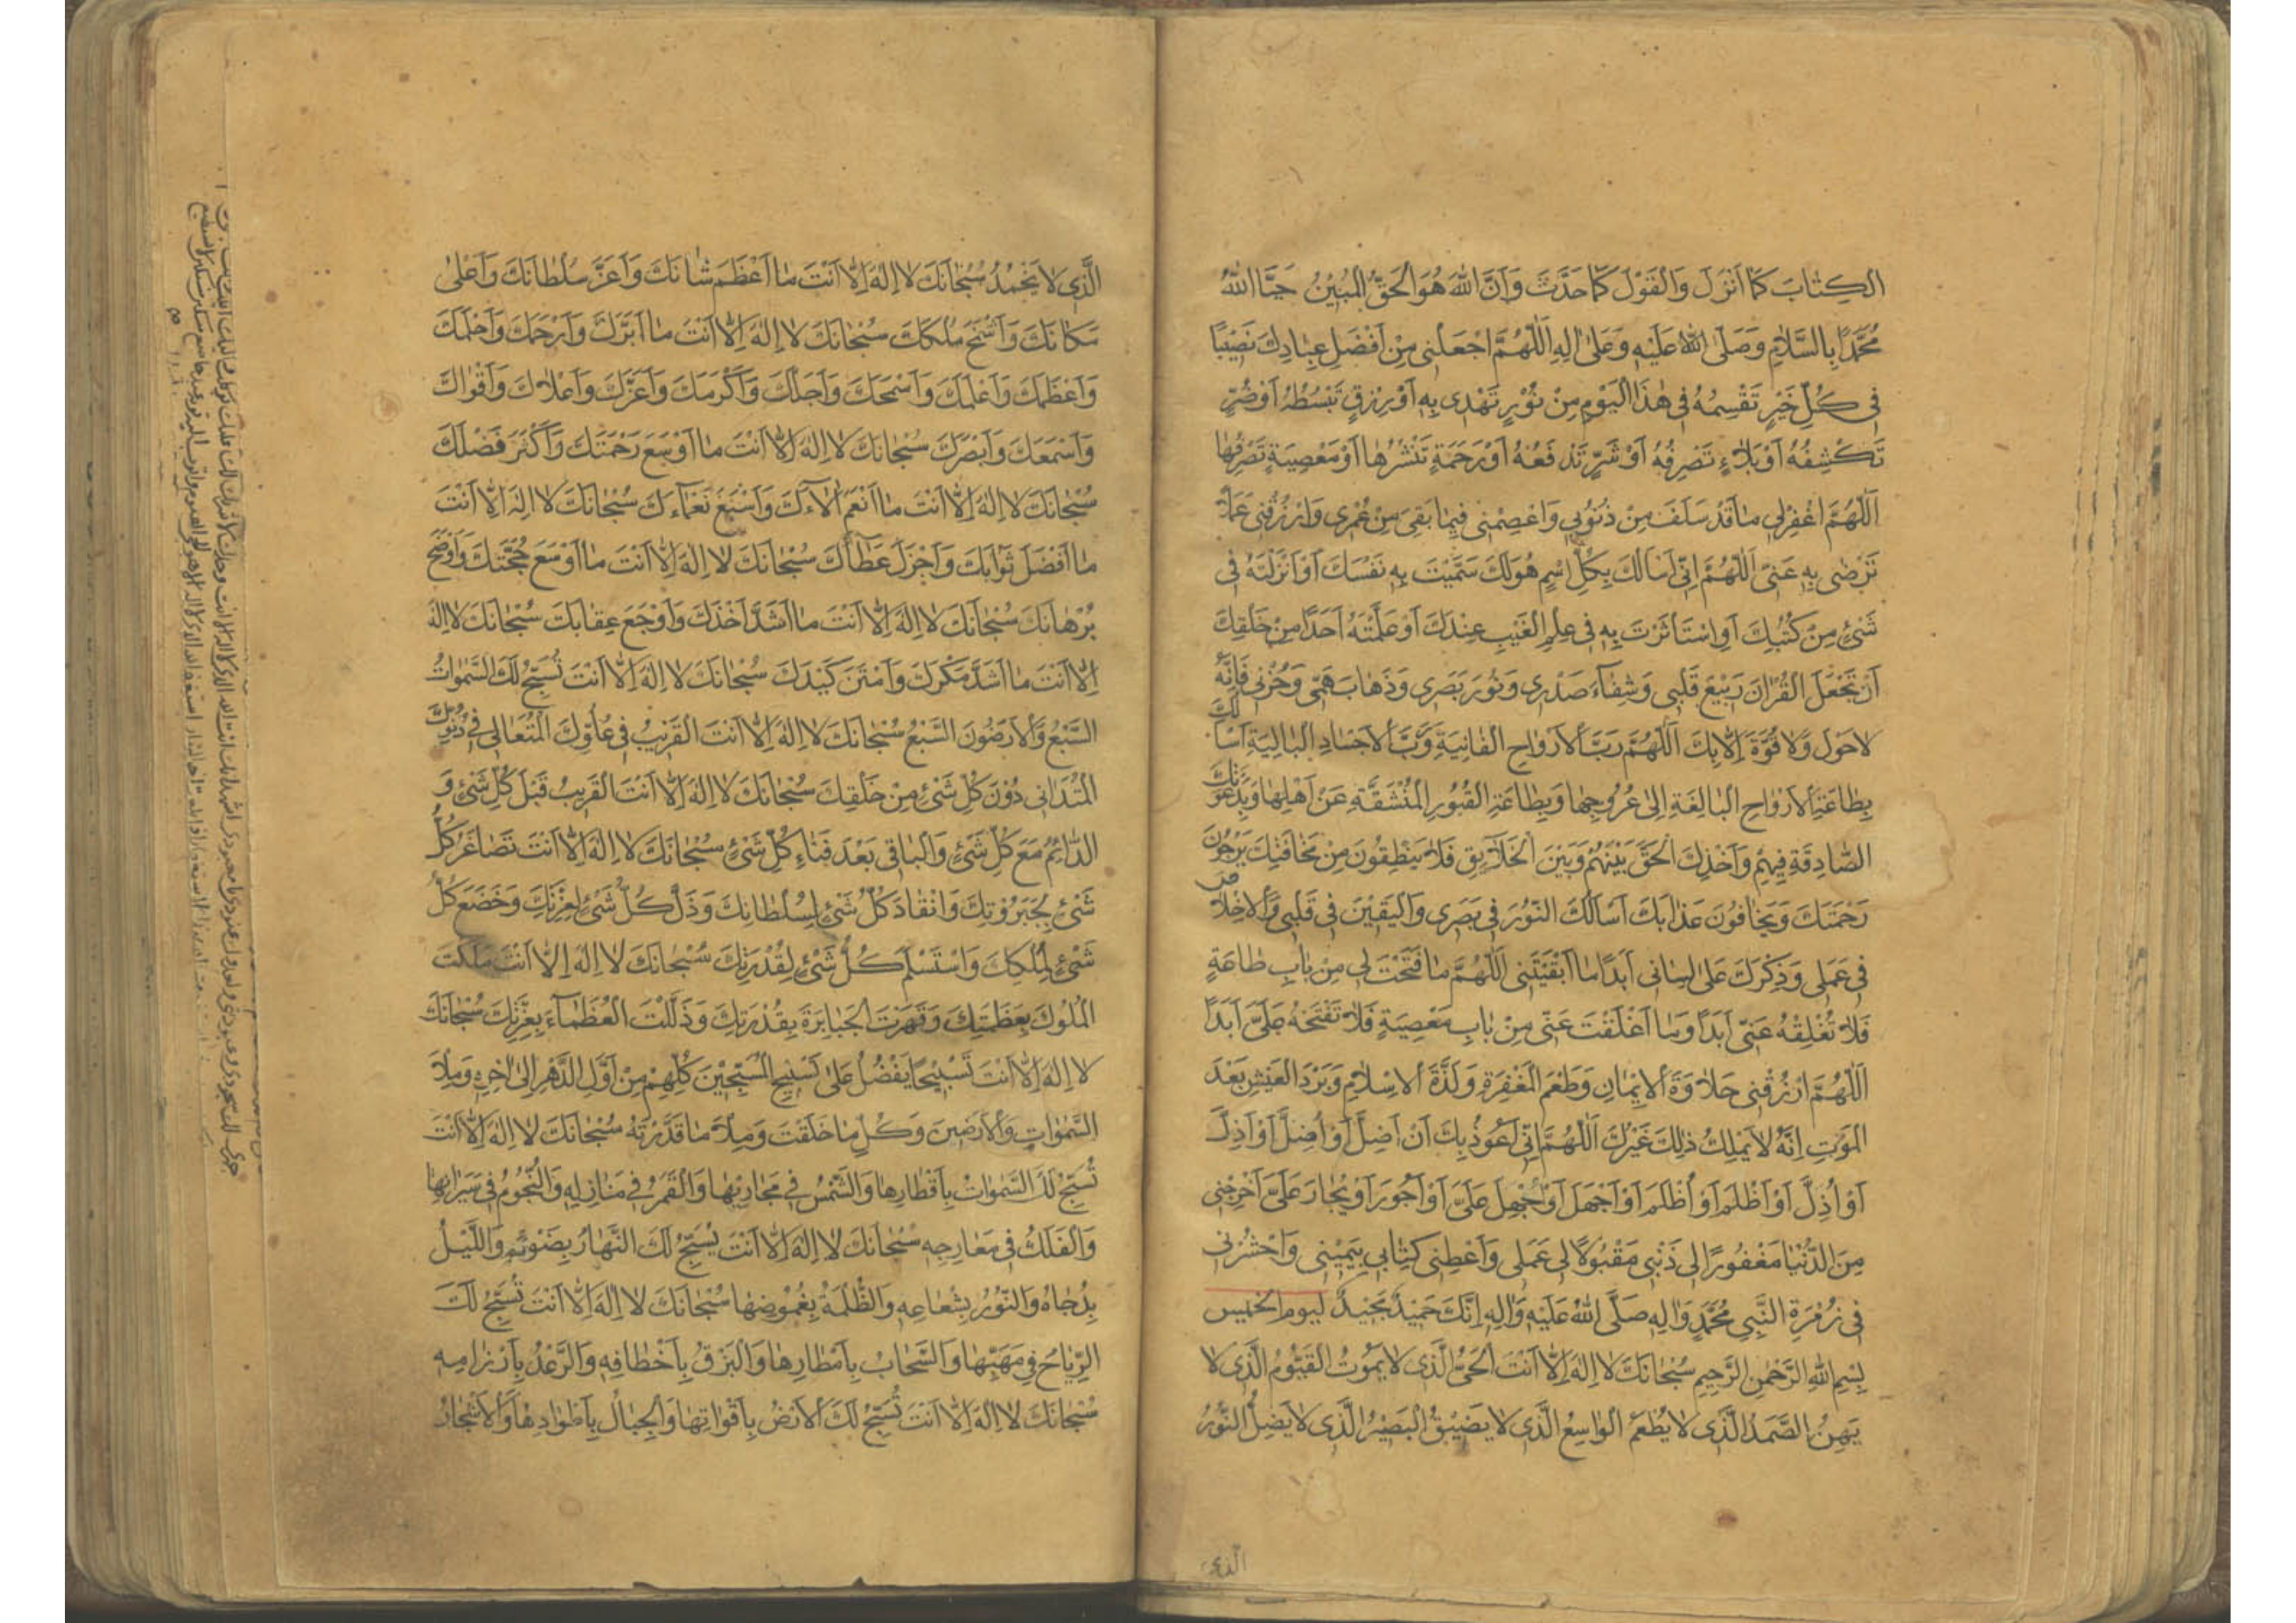 الكِتابَ كَما اَنْزَلَ وَالْقَوْلَ كَما حَدَّثَ وَاَنَّ اللهَ هُوَ الْحَقُّ الْمُبينُ حَيَّا اللهُ
مُحَمَّدًا بِالسَّلامِ وَصَلَّى اللهُ عَلَيْهِ وَعَلى الِهِ اَللّهُمَّ اجْعَلْني مِنْ اَفْضَلِ عِبادِكَ نَصيبًا
في كُلِّ خَيْرٍ تَقْسِمُهُ في هذَا الْيَوْمِ مِنْ نُوْرٍ تَهْدي بِهِ اَوْ رِزْقٍ تَبْسُطُهُ اَوْ ضُرٍّ
تَكْشِفُهُ اَوْ بَلاءٍ تَصْرِفُهُ اَوْ شَرٍّ تَدْفَعُهُ اَوْ رَحْمَةٍ تَنْشُرُها اَوْ مَعْصِيَةٍ تَصْرِفُها
اَللّهُمَّ اغْفِرْ لي ما قَدْ سَلَفَ مِنْ ذُنُوْبي وَاعْصِمْني فيما بَقِيَ مِنْ عُمْري وَارْزُقْني عَمَلاً
تَرْضى بِهِ عَنّي اَللّهُمَّ اِنّي اَسْاَلُكَ بِكُلِّ اسْمٍ هُوَ لَكَ سَمَّيْتَ بِهِ نَفْسَكَ اَوْ اَنْزَلْتَهُ في
شَيْءٍ مِنْ كُتُبِكَ اَوِ اسْتَأْثَرْتَ بِهِ في عِلْمِ الْغَيْبِ عِنْدَكَ اَوْ عَلَّمْتَهُ اَحَدًا مِنْ خَلْقِكَ
اَنْ تَجْعَلَ الْقُرْانَ رَبيعَ قَلْبي وَشِفآءَ صَدْري وَنُوْرَ بَصَري وَذَهابَ هَمّي وَحُزْني فَاِنَّهُ
لا حَوْلَ وَلا قُوَّةَ اِلاّ بِكَ اَللّهُمَّ رَبَّ الْاَرْواحِ الْفانِيَةِ وَرَبَّ الْاَجْسادِ الْبالِيَةِ اَسْأَلُكَ
بِطاعَةِ الْاَرْواحِ الْبالِغَةِ اِلى عُرُوْجِها وَبِطاعَةِ الْقُبُورِ الْمُنْشَقَّةِ عَنْ اَهْلِها وَبِدَعْوَتِكَ
الصّادِقَةِ فيهِمْ وَاَخْذِكَ الْحَقَّ بَيْنَهُمْ وَبَيْنَ الْخَلآيِقِ فَلا يَنْطِقُونَ مِنْ مَخافَتِكَ يَرْجُونَ
رَحْمَتَكَ وَيَخافُونَ عَذابَكَ اَسْاَلُكَ النُّوْرَ في بَصَري وَالْيَقينَ في قَلْبي وَالْاِخْلاصَ
في عَمَلي وَذِكْرَكَ عَلى لِساني اَبَدًا ما اَبْقَيْتَني اَللّهُمَّ ما فَتَحْتَ لي مِنْ بابِ طاعَةٍ
فَلا تُغْلِقْهُ عَنّي اَبَدًا وَما اَغْلَقْتَ عَنّي مِنْ بابِ مَعْصِيَةٍ فَلا تَفْتَحْهُ عَلَيَّ اَبَدًا
اَللّهُمَّ ارْزُقْني حَلاوَةَ الْاِيْمانِ وَطَعْمَ الْمَغْفِرَةِ وَلَذَّةَ الْاِسْلامِ وَبَرْدَ الْعَيْشِ بَعْدَ
الْمَوْتِ اِنَّهُ لا يَمْلِكُ ذلِكَ غَيْرُكَ اَللّهُمَّ اِنّي اَعُوْذُ بِكَ اَنْ اَضِلَّ اَوْ اُضِلَّ اَوْ اَذِلَّ
اَوْ اُذِلَّ اَوْ اَظْلِمَ اَوْ اُظْلَمَ اَوْ اَجْهَلَ اَوْ يُجْهَلَ عَلَيَّ اَوْ اَجُوْرَ اَوْ يُجارَ عَلَيَّ اَخْرِجْني
مِنَ الدُّنْيا مَغْفُورًا لي ذَنْبي مَقْبُولاً لي عَمَلي وَاَعْطِني كِتابي بِيَميني وَاحْشُرْني
في زُمْرَةِ النَّبِيِّ مُحَمَّدٍ وَالِهِ صَلَّى اللهُ عَلَيْهِ وَالِهِ اِنَّكَ حَميدٌ مَجيدٌ ليوم الخميس
بِسْمِ اللهِ الرَّحْمنِ الرَّحيمِ سُبْحانَكَ لا اِلهَ اِلاّ اَنْتَ الْحَيُّ الَّذي لا يَمُوتُ الْقَيُّومُ الَّذي لا
يَهِنُ الصَّمَدُ الَّذي لا يُطْعَمُ الْواسِعُ الَّذي لا يَضيقُ الْبَصيرُ الَّذي لا يَضِلُّ النُّوْرُ
الّذي
الَّذي لا يَخْمُدُ سُبْحانَكَ لا اِلهَ اِلاّ اَنْتَ ما اَعْظَمَ شَانَكَ وَاَعَزَّ سُلْطانَكَ وَاَعْلى
مَكانَكَ وَاَشْمَخَ مُلْكَكَ سُبْحانَكَ لا اِلهَ اِلاّ اَنْتَ ما اَبَرَّكَ وَاَرْحَمَكَ وَاَحْلَمَكَ
وَاَعْظَمَكَ وَاَعْلَمَكَ وَاَسْمَحَكَ وَاَجَلَّكَ وَاَكْرَمَكَ وَاَعَزَّكَ وَاَعْلاكَ وَاَقْواكَ
وَاَسْمَعَكَ وَاَبْصَرَكَ سُبْحانَكَ لا اِلهَ اِلاّ اَنْتَ ما اَوْسَعَ رَحْمَتَكَ وَاَكْثَرَ فَضْلَكَ
سُبْحانَكَ لا اِلهَ اِلاّ اَنْتَ ما اَنْعَمَ الآءَكَ وَاَسْبَغَ نَعْمآءَكَ سُبْحانَكَ لا اِلهَ اِلاّ اَنْتَ
ما اَفْضَلَ ثَوابَكَ وَاَجْزَلَ عَطآءَكَ سُبْحانَكَ لا اِلهَ اِلاّ اَنْتَ ما اَوْسَعَ حُجَّتَكَ وَاَوْضَحَ
بُرْهانَكَ سُبْحانَكَ لا اِلهَ اِلاّ اَنْتَ ما اَشَدَّ اَخْذَكَ وَاَوْجَعَ عِقابَكَ سُبْحانَكَ لا اِلهَ
اِلاّ اَنْتَ ما اَشَدَّ مَكْرَكَ وَاَمْتَنَ كَيْدَكَ سُبْحانَكَ لا اِلهَ اِلاّ اَنْتَ تُسَبِّحُ لَكَ السَّمواتُ
السَّبْعُ وَالْاَرَضُونَ السَّبْعُ سُبْحانَكَ لا اِلهَ اِلاّ اَنْتَ الْقَريبُ في عُلُوِّكَ الْمُتَعالي في دُنُوِّكَ
الْمُتَداني دُوْنَ كُلِّ شَيْءٍ مِنْ خَلْقِكَ سُبْحانَكَ لا اِلهَ اِلاّ اَنْتَ الْقَريبُ قَبْلَ كُلِّ شَيْءٍ وَ
الدّائِمُ مَعَ كُلِّ شَيْءٍ وَالْباقي بَعْدَ فَناءِ كُلِّ شَيْءٍ سُبْحانَكَ لا اِلهَ اِلاّ اَنْتَ تَصاغَرَ كُلُّ
شَيْءٍ لِجَبَرُوْتِكَ وَانْقادَ كُلُّ شَيْءٍ لِسُلْطانِكَ وَذَلَّ كُلُّ شَيْءٍ لِعِزَّتِكَ وَخَضَعَ كُلُّ
شَيْءٍ لِمُلْكِكَ وَاسْتَسْلَمَ كُلُّ شَيْءٍ لِقُدْرَتِكَ سُبْحانَكَ لا اِلهَ اِلاّ اَنْتَ مَلَكْتَ
الْمُلُوكَ بِعَظَمَتِكَ وَقَهَرْتَ الْجَبابِرَةَ بِقُدْرَتِكَ وَذَلَّلْتَ الْعُظَمآءَ بِعِزَّتِكَ سُبْحانَكَ
لا اِلهَ اِلاّ اَنْتَ تَسْبيحًا يَفْضُلُ عَلى تَسْبيحِ الْمُسَبِّحينَ كُلِّهِمْ مِنْ اَوَّلِ الدَّهْرِ اِلى اخِرِهِ وَمِلْأَ
السَّمواتِ وَالْاَرَضينَ وَكُلِّ ما خَلَقْتَ وَمِلْأَ ما قَدَّرْتَهُ سُبْحانَكَ لا اِلهَ اِلاّ اَنْتَ
تُسَبِّحُ لَكَ السَّمواتُ بِاَقْطارِها وَالشَّمْسُ في مَجاريها وَالْقَمَرُ في مَنازِلِهِ وَالنُّجُومُ في سَيَرانِها
وَالْفَلَكُ في مَعارِجِهِ سُبْحانَكَ لا اِلهَ اِلاّ اَنْتَ يُسَبِّحُ لَكَ النَّهارُ بِضَوْئِهِ وَاللَّيْلُ
بِدُجاهُ وَالنُّوْرُ بِشُعاعِهِ وَالظُّلْمَةُ بِغُمُوضِها سُبْحانَكَ لا اِلهَ اِلاّ اَنْتَ تُسَبِّحُ لَكَ
الرِّياحُ في مَهَبِّها وَالسَّحابُ بِاَمْطارِها وَالْبَرْقُ بِاَخْطافِهِ وَالرَّعْدُ بِاَرْزامِهِ
سُبْحانَكَ لا اِلهَ اِلاّ اَنْتَ تُسَبِّحُ لَكَ الْاَرْضُ بِاَقْواتِها وَالْجِبالُ بِاَطْوادِها وَالْاَشْجارُ